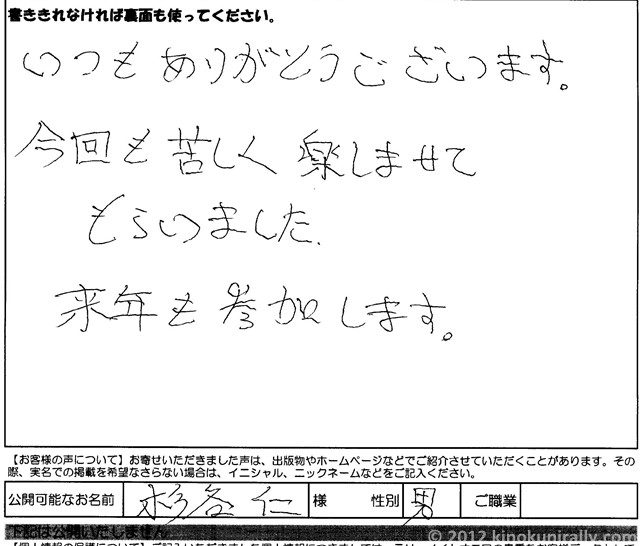 書ききれなければ裏面も使ってください。
いつも ありがとうございます。
今回も 苦しく 楽しませて
もらいました.
来年も 参加します。
【お客様の声について】お寄せいただきました声は、出版物やホームページなどでご紹介させていただくことがあります。その
際、実名での掲載を希望なさらない場合は、イニシャル、ニックネームなどをご記入ください。
公開可能なお名前 杉谷 仁 様 性別 男 ご職業
下記は公開いたしません
© 2012 kinokunirally.com